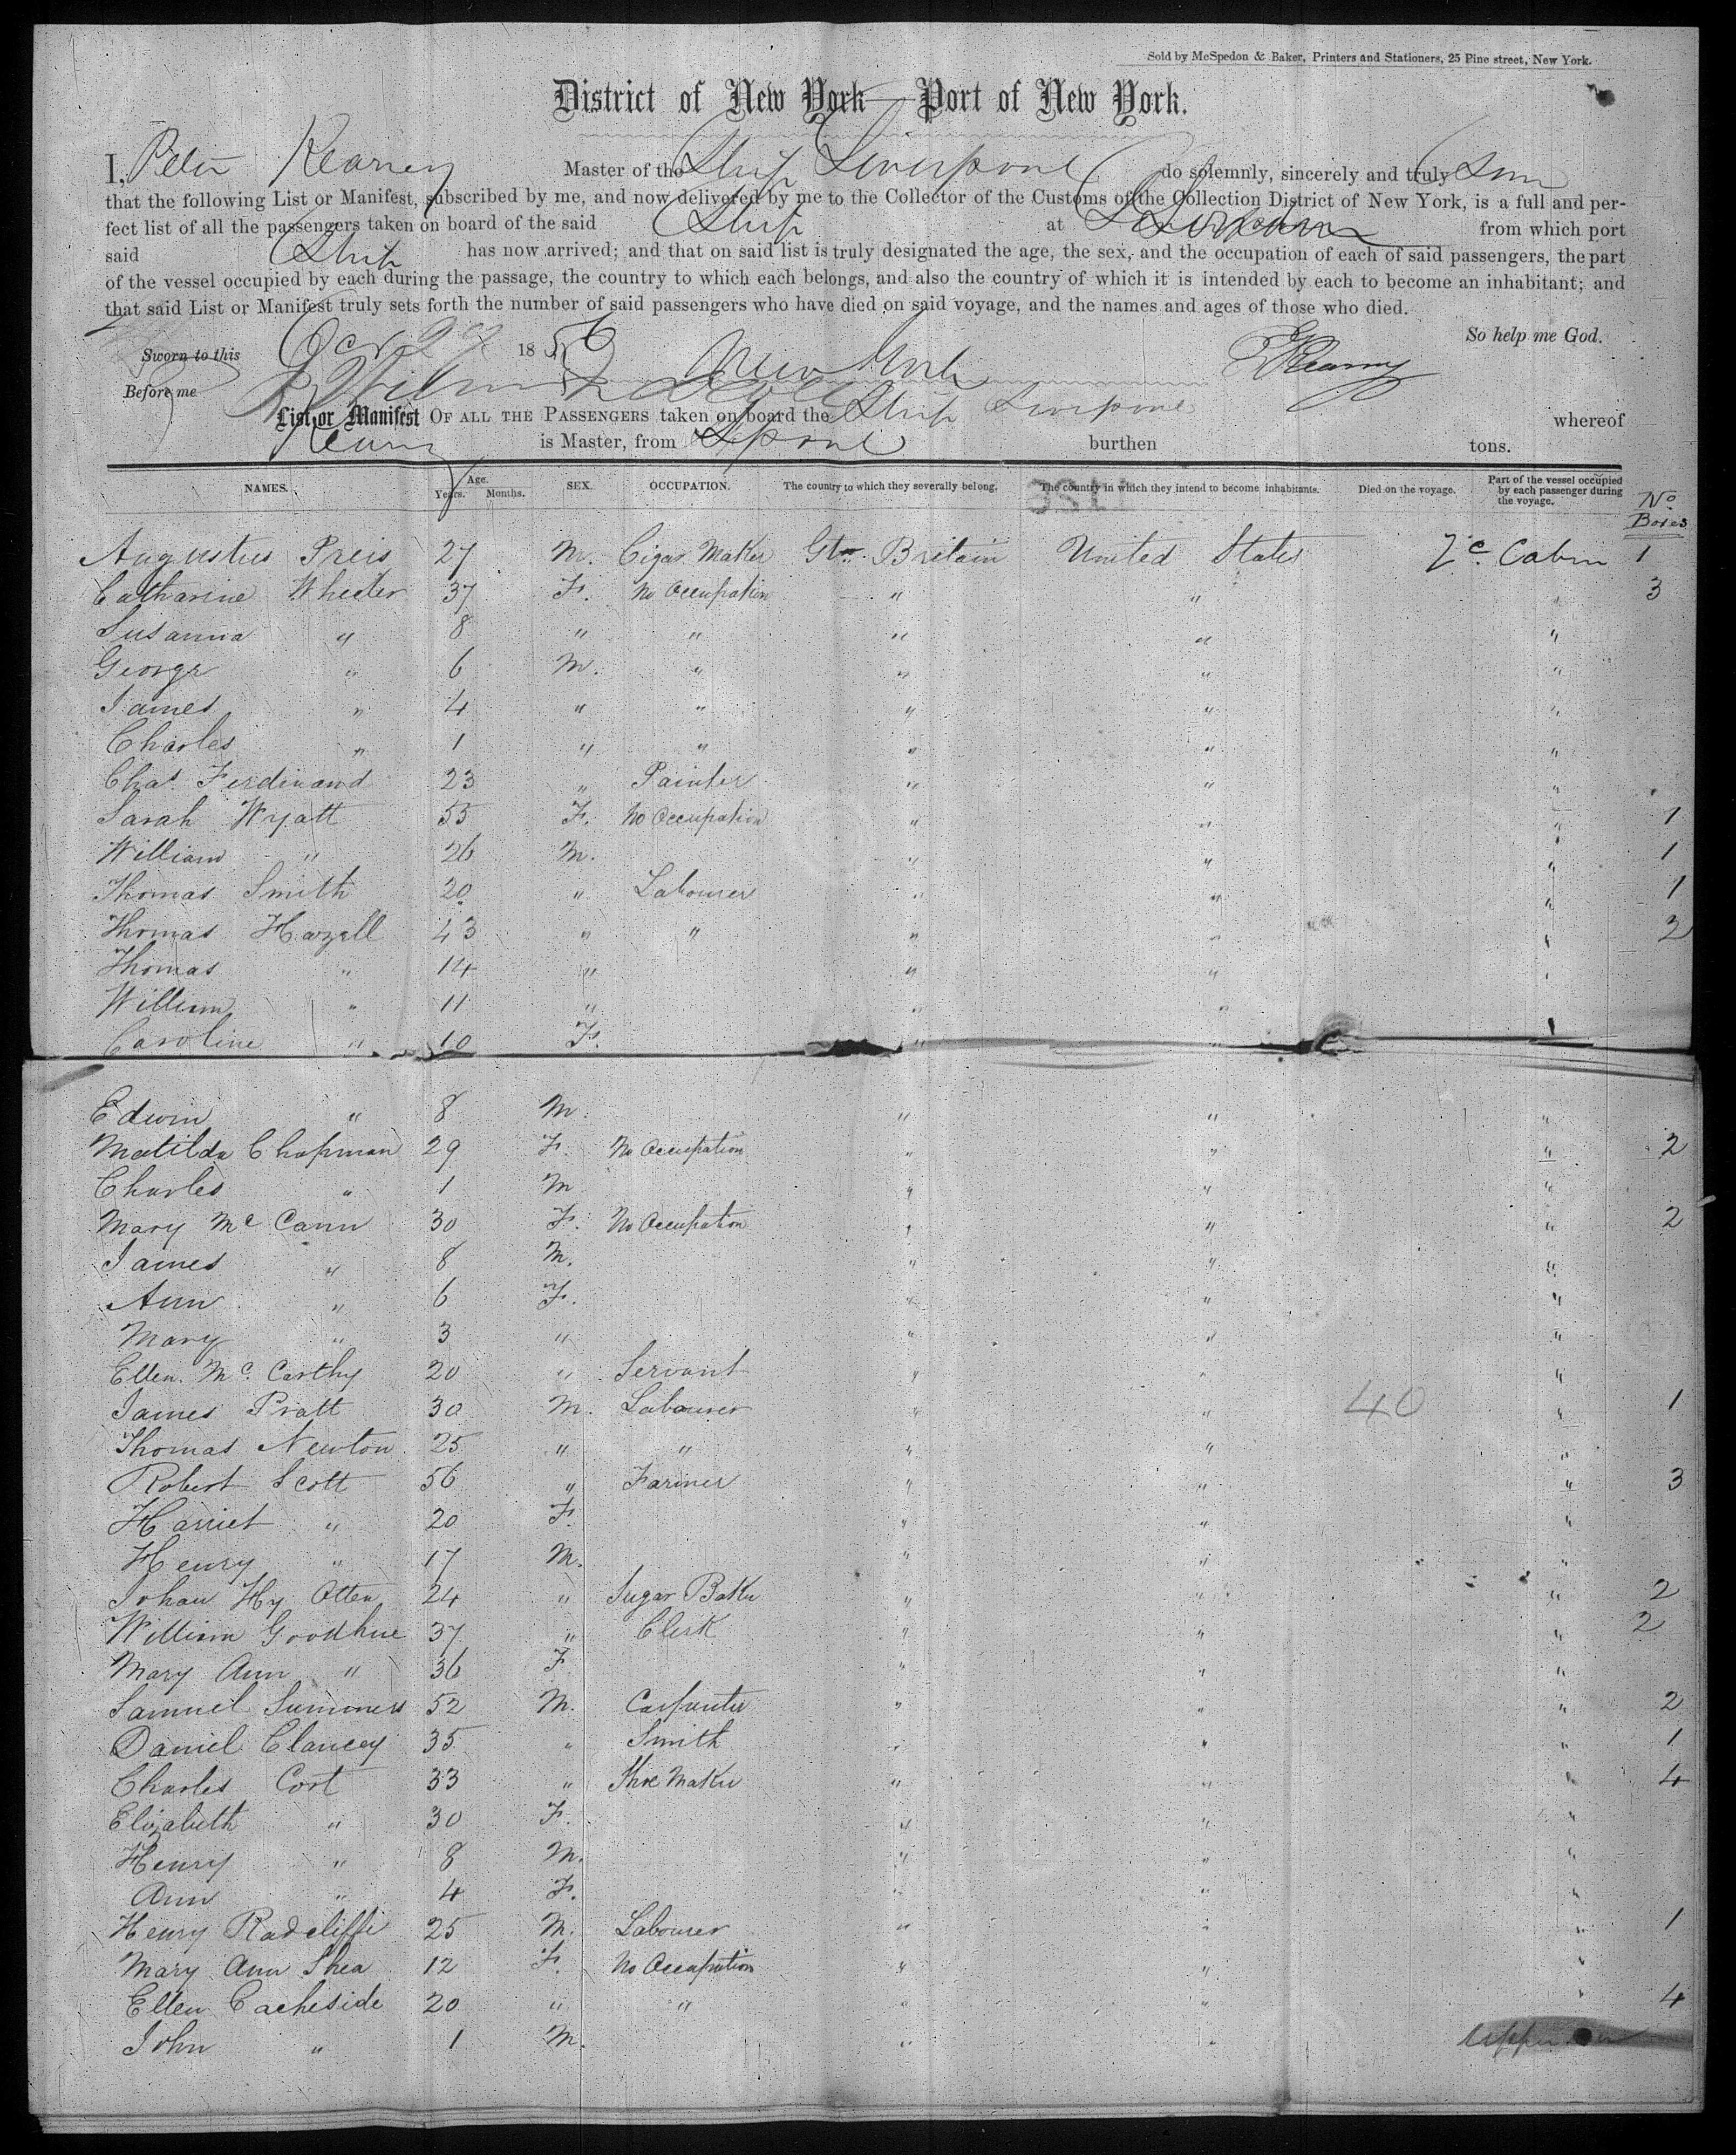 Sold by McSpedon & Baker, Printers and Stationers, 25 Pine street, New York.
District of New York—Port of New York.
I, Peter Kearney Master of the Ship Liverpool do solemnly, sincerely and truly
that the following List or Manifest, subscribed by me, and now delivered by me to the Collector of the Customs of the Collection District of New York, is a full and per-
fect list of all the passengers taken on board of the said Ship at from which port
said Ship has now arrived; and that on said list is truly designated the age, the sex, and the occupation of each of said passengers, the part
of the vessel occupied by each during the passage, the country to which each belongs, and also the country of which it is intended by each to become an inhabitant; and
that said List or Manifest truly sets forth the number of said passengers who have died on said voyage, and the names and ages of those who died.
So help me God.
Sworn to this Oct 29 1856 New York Kearney
Before me
List or Manifest OF ALL THE PASSENGERS taken on board the Ship Liverpool whereof
Kearney is Master, from Lpool burthen tons.
NAMES. Age. Years. Months. SEX. OCCUPATION. The country to which they severally belong. The country in which they intend to become inhabitants. Died on the voyage. Part of the vessel occupied by each passenger during the voyage. No Boxes
Augustus Preis 27 M. Cigar Maker Gt. Britain United States 2c. Cabin 1
Catharine Wheeler 37 F. No Occupation " " " 3
Susanna " 8 " " " " "
George " 6 M. " " " "
James " 4 " " " " "
Charles " 1 " " " " "
Chas. Ferdinand 23 " Painter " " "
Sarah Wyatt 55 F. No Occupation " " " 1
William " 26 M. " " " 1
Thomas Smith 20 " Labourer " " " 1
Thomas Hazell 43 " " " " " 2
Thomas " 14 " " " "
William " 11 " " " "
Caroline " 10 F. " " "
Edwin " 8 M. " " "
Matilda Chapman 29 F. No Occupation " " " 2
Charles " 1 M " " "
Mary Mc Cann 30 F. No Occupation " " " 2
James " 8 M. " " "
Ann " 6 F. " " "
Mary " 3 " " " "
Ellen Mc Carthy 20 " Servant " " "
James Pratt 30 M. Labourer " " 40 " 1
Thomas Newton 25 " " " " "
Robert Scott 56 " Farmer " " " 3
Harriet " 20 F. " " "
Henry " 17 M. " " "
Johan Hy Otten 24 " Sugar Baker " " " 2
William Goodhue 37 " Clerk " " " 2
Mary Ann " 36 F " " "
Samuel Summers 52 M. Carpenter " " " 2
Daniel Clancey 35 " Smith " " " 1
Charles Cort 33 " Shoe Maker " " " 4
Elizabeth " 30 F. " " "
Henry " 8 M. " " "
Ann " 4 F. " " "
Henry Radcliffe 25 M. Labourer " " " 1
Mary Ann Shea 12 F. No Occupation " " "
Ellen Cacheside 20 " " " " " 4
John " 1 M. " "